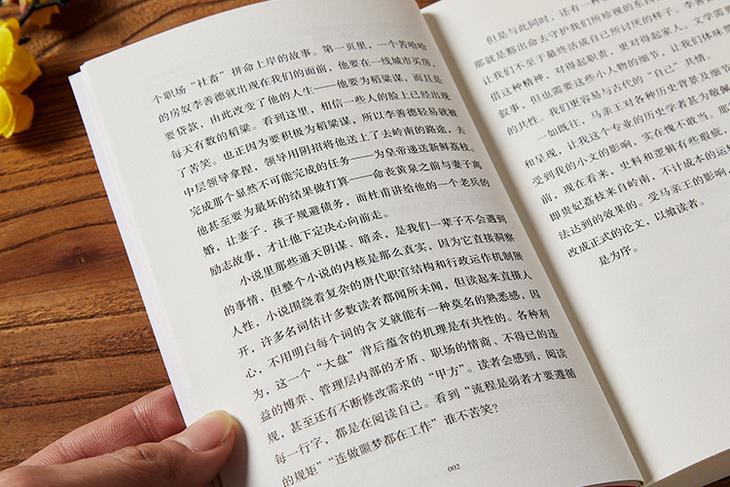 个职场“社畜”拼命上岸的故事。第一页里，一个苦哈哈
的房奴李善德就出现在我们的面前，他要在一线城市买房，
要贷款，由此改变了他的人生——他要为稻粱谋，而且是
每天有数的稻粱。看到这里，相信一些人的脸上已经出现
了苦笑。也正因为要积极为稻粱谋，所以李善德轻易就被
中层领导拿捏，领导用阴招将他送上了去岭南的路途，去
完成那个显然不可能完成的任务——为皇帝递送新鲜荔枝。
他甚至要为最坏的结果做打算——命丧黄泉之前与妻子离
婚，让妻子、孩子规避债务，而杜甫讲给他的一个老兵的
励志故事，才让他下定决心向前走。
小说里那些通天阴谋、暗杀，是我们一辈子不会遇到
的事情，但整个小说的内核是那么真实，因为它直接洞察
人性，小说围绕着复杂的唐代职官结构和行政运作机制展
开，许多名词估计多数读者都闻所未闻，但读起来直摄人
心，不用明白每个词的含义就能有一种莫名的熟悉感，因
为，这一个“大盘”背后蕴含的机理是有共性的。各种利
益的博弈、管理层内部的矛盾、职场的情商、不得已的违
规，甚至还有不断修改需求的“甲方”。读者会感到，阅读
每一行字，都是在阅读自己。看到“流程是弱者才要遵循
的规矩”“连做噩梦都在工作”谁不苦笑？
002
但是与此同时，还有一种
那就是豁出命去守护我们所珍视的东
让我们不至于最终活成自己所讨厌的样子。李善
借这种精神，对得起职责，更对得起家人。文学需
叙事，但也需要这些小人物的细节，让我们体味那
的共性。我们更容易与古代的“自己”共情。
一如既往，马亲王对各种历史背景及细节
和呈现，让我这个专业的历史学者甚为敬佩
受到我的小文的影响，实在愧不敢当。那
前，现在看来，史料和逻辑有些瑕疵，
即贵妃荔枝来自岭南，不计成本的运
法达到的效果的。受马亲王的影响，
改成正式的论文，以飨读者。
是为序。